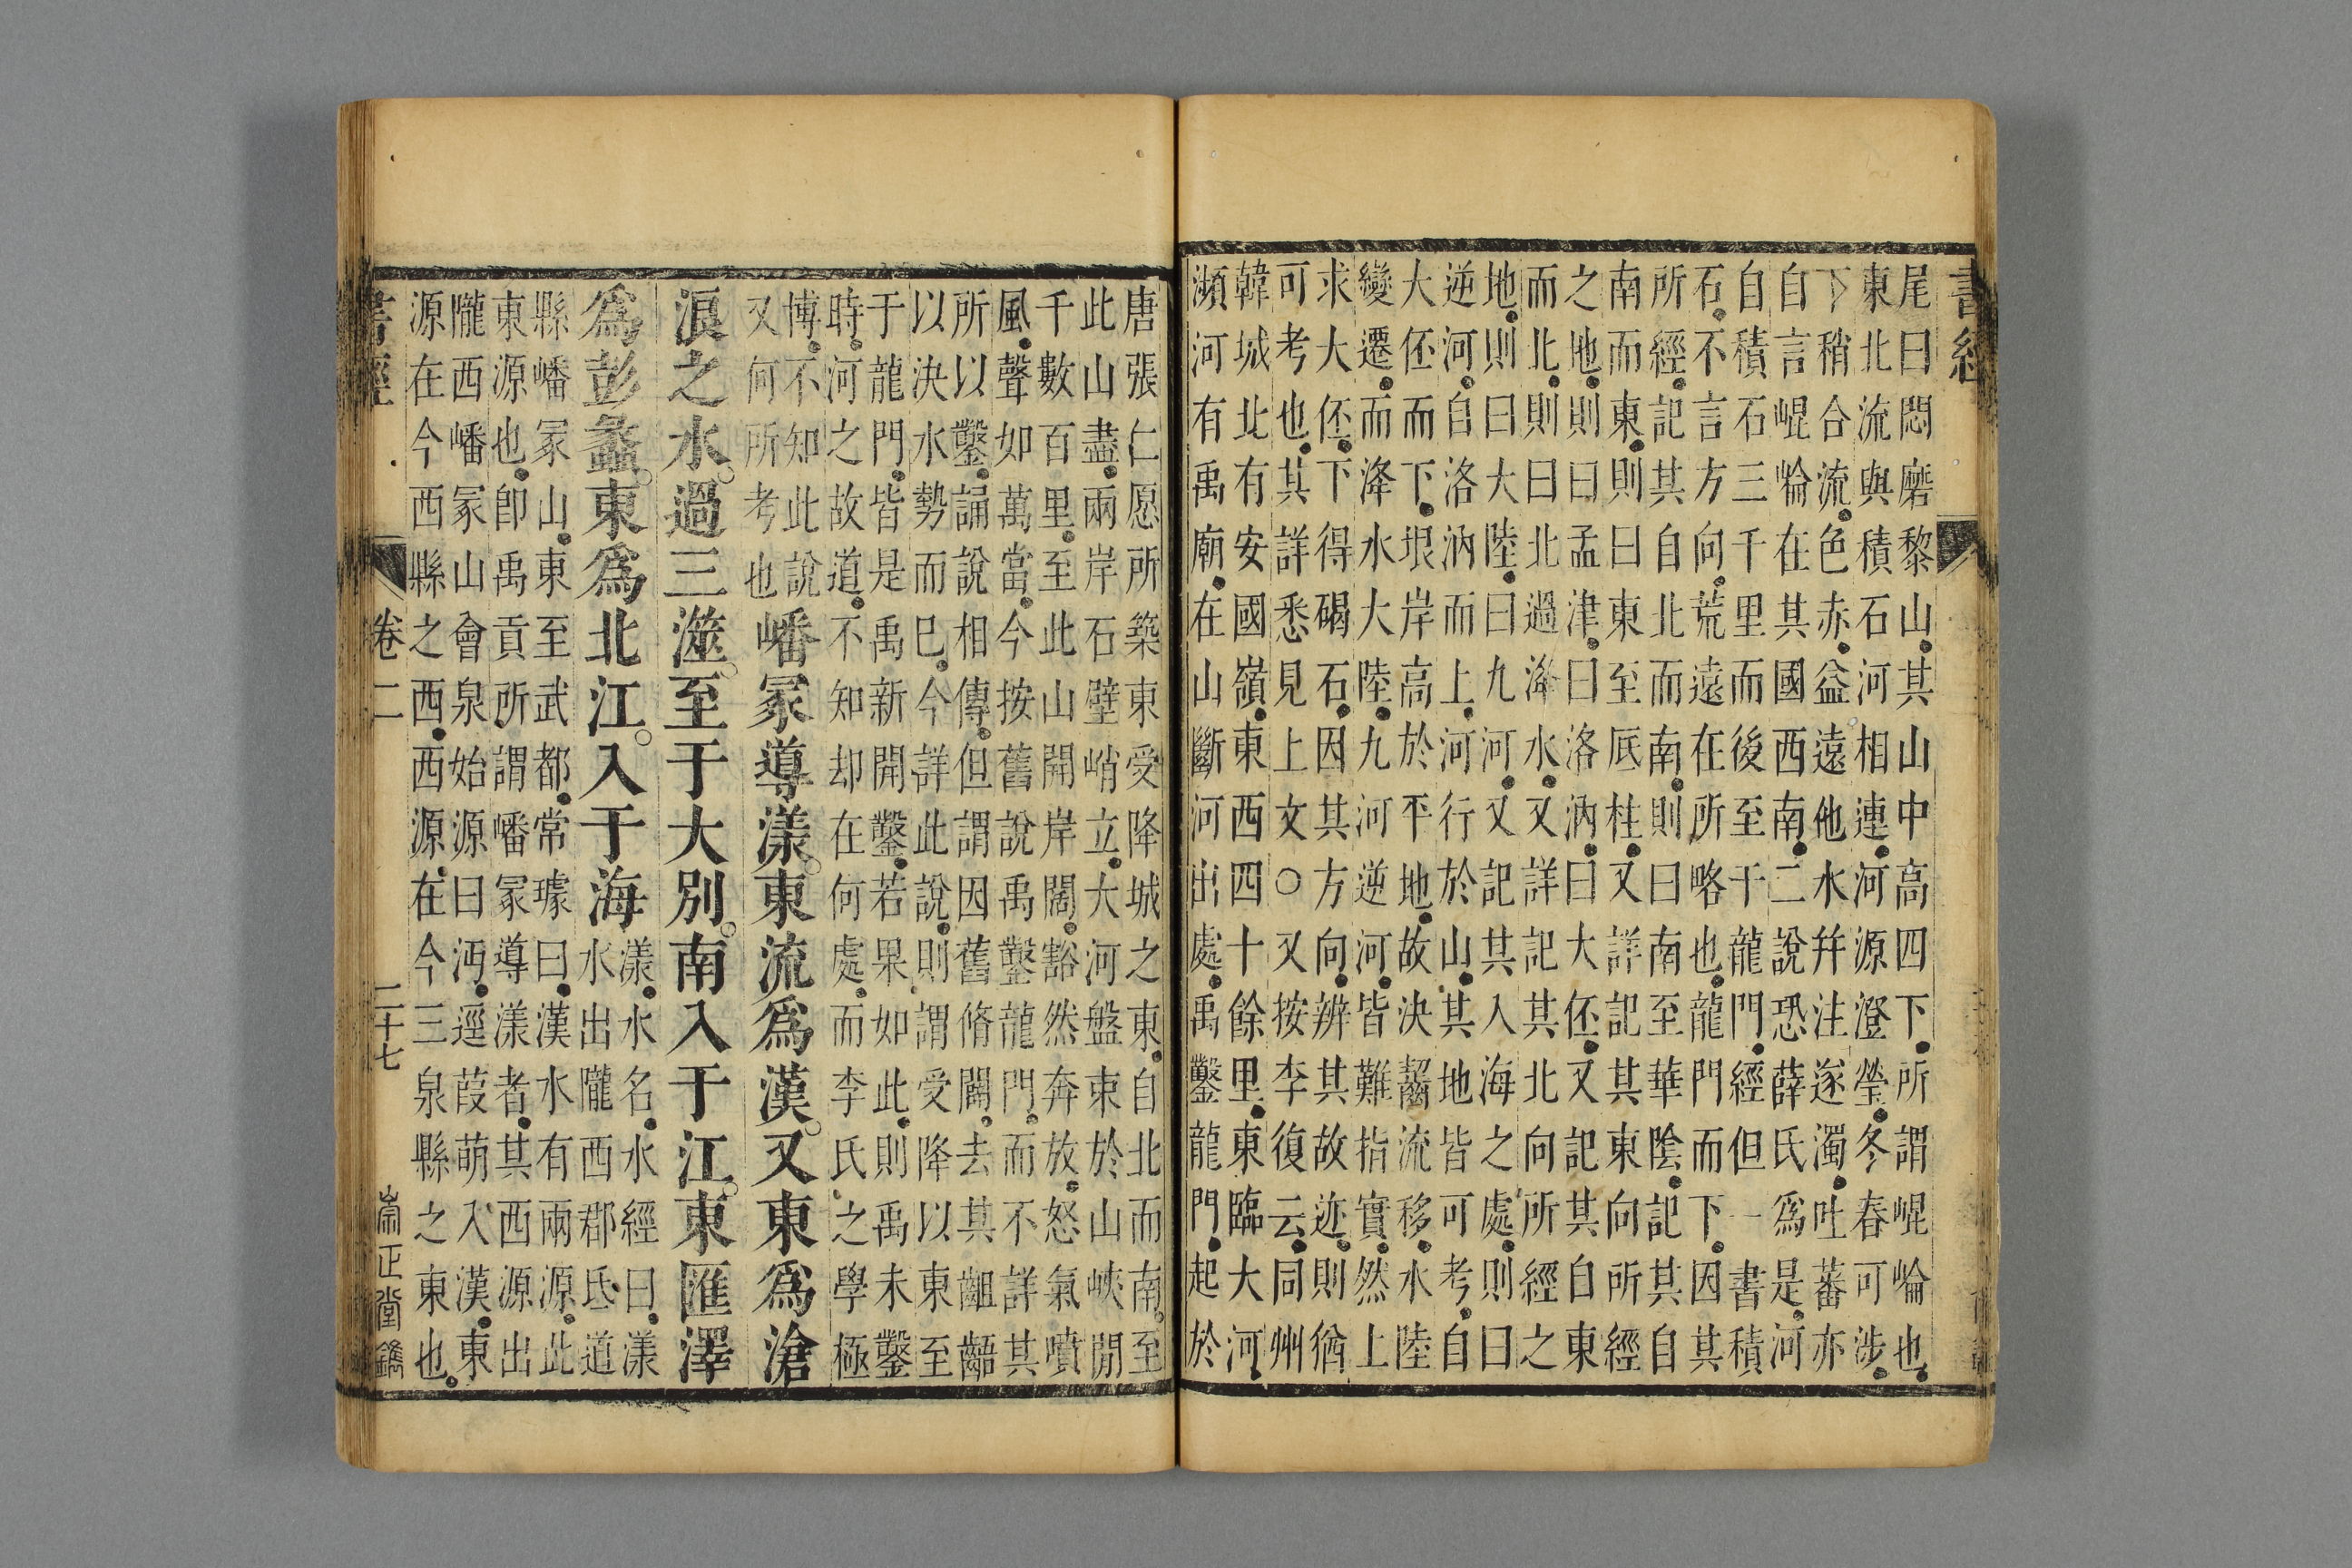 書經
尾曰悶磨黎山其山中高四下所謂崐崘也
東北流與積石河相連河源澄瑩冬春可涉
下稍合流色赤益遠他水幷注遂濁吐蕃亦
自言崐崘在其國西南二說恐薛氏爲是河
自積石三千里而後至于龍門經但一書積
石不言方向荒遠在所略也龍門而下因其
所經記其自北而南則曰南至華陰記其自
南而東則曰東至底柱又詳記其東向所經
之地則曰孟津曰洛汭曰大伾又記其自東
而北則曰北過洚水又詳記其北向所經之
地則曰大陸曰九河又記其入海之處則曰
逆河自洛汭而上河行於山其地皆可考自
大伾而下垠岸高於平地故決齧流移水陸
變遷而洚水大陸九河逆河皆難指實然上
求大伾下得碣石因其方向辨其故迹則猶
可考也其詳悉見上文○又按李復云同州
韓城北有安國嶺東西四十餘里東臨大河
瀕河有禹廟在山斷河出處禹鑿龍門起於
唐張仁愿所築東受降城之東自北而南至
此山盡兩岸石壁峭立大河盤束於山峽間
千數百里至此山開岸闊豁然奔放怒氣噴
風聲如萬當今按舊說禹鑿龍門而不詳其
所以鑿誦說相傳但謂因舊脩闢去其齟齬
以決水勢而已今詳此說則謂受降以東至
于龍門皆是禹新開鑿若果如此則禹未鑿
時河之故道不知却在何處而李氏之學極
博不知此說
又何所考也
嶓冢導漾東流爲漢又東爲滄
浪之水過三澨至于大別南入于江東匯澤
爲彭蠡東爲北江入于海
漾水名水經曰漾
水出隴西郡氐道
縣嶓冢山東至武都常璩曰漢水有兩源此
東源也卽禹貢所謂嶓冢導漾者其西源出
隴西嶓冢山會泉始源曰沔逕葭萌入漢東
源在今西縣之西西源在今三泉縣之東也
書經
卷二
二十七
崇正堂鐫